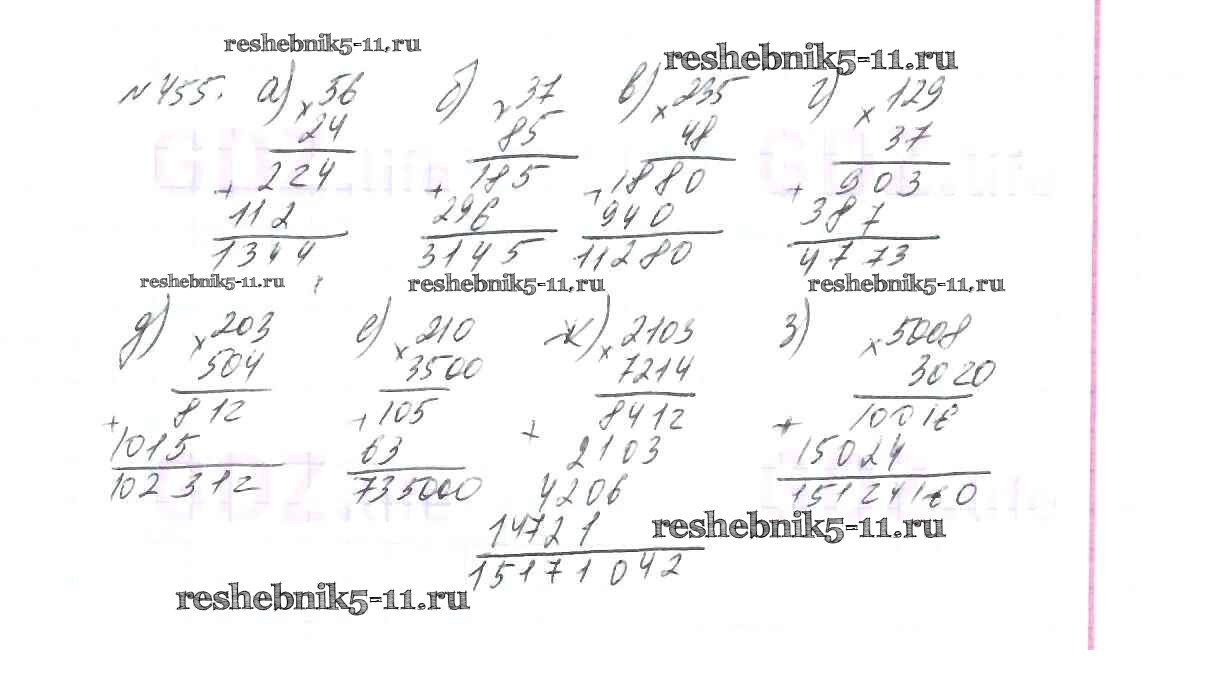 reshebnik5-11.ru
reshebnik5-11.ru
№455. а) × 56 б) × 37 в) × 235 г) × 129
24 85 48 37
224 185 1880 903
+ + + +
112 296 940 387
1344 3145 11280 4773
reshebnik5-11.ru reshebnik5-11.ru reshebnik5-11.ru
д) × 203 е) × 210 ж) × 2103 з) × 5008
504 3500 7214 3020
+ 812 + 105 + 8412 +
1015 63 2103 15024
102312 735000 4206
14721
reshebnik5-11.ru
15171042
reshebnik5-11.ru